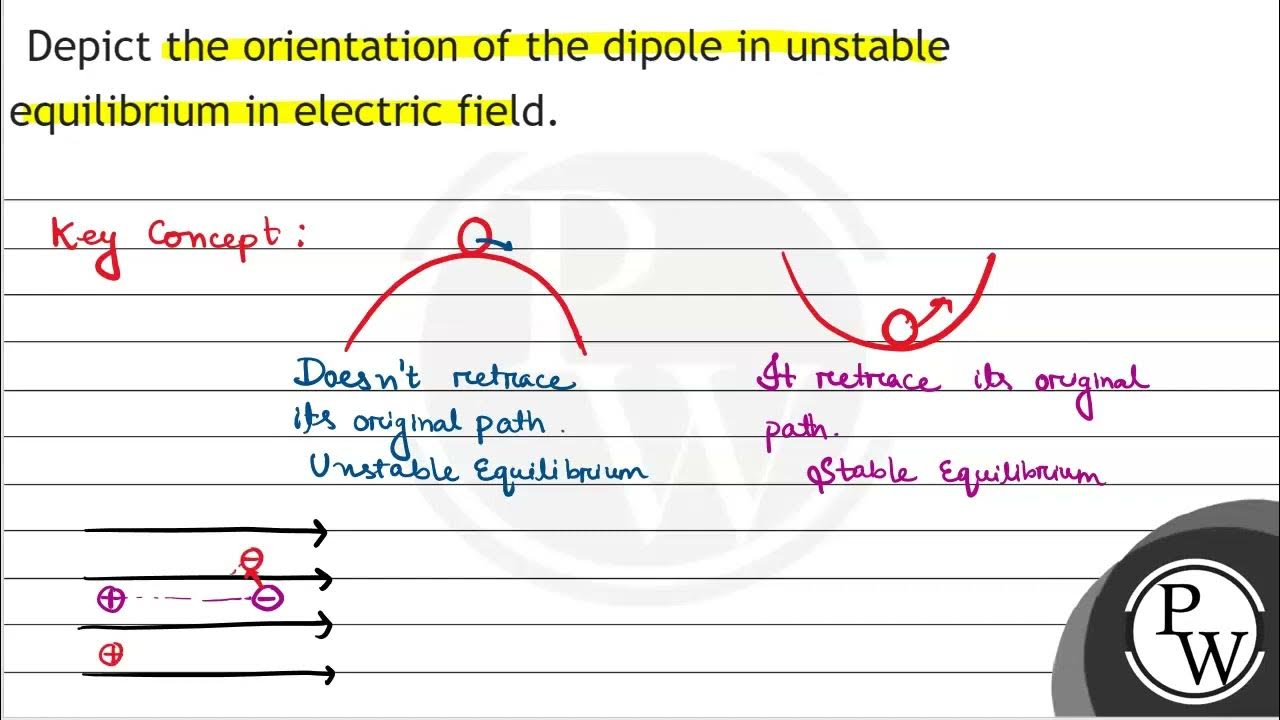 Depict the orientation of the dipole in unstable
equilibrium in electric field.
Key Concept:
Doesn't retrace
its original path.
Unstable Equilibrium
It retrace its original
path.
Stable Equilibrium
⊖
⊕ ⊖
⊕
PW
PW